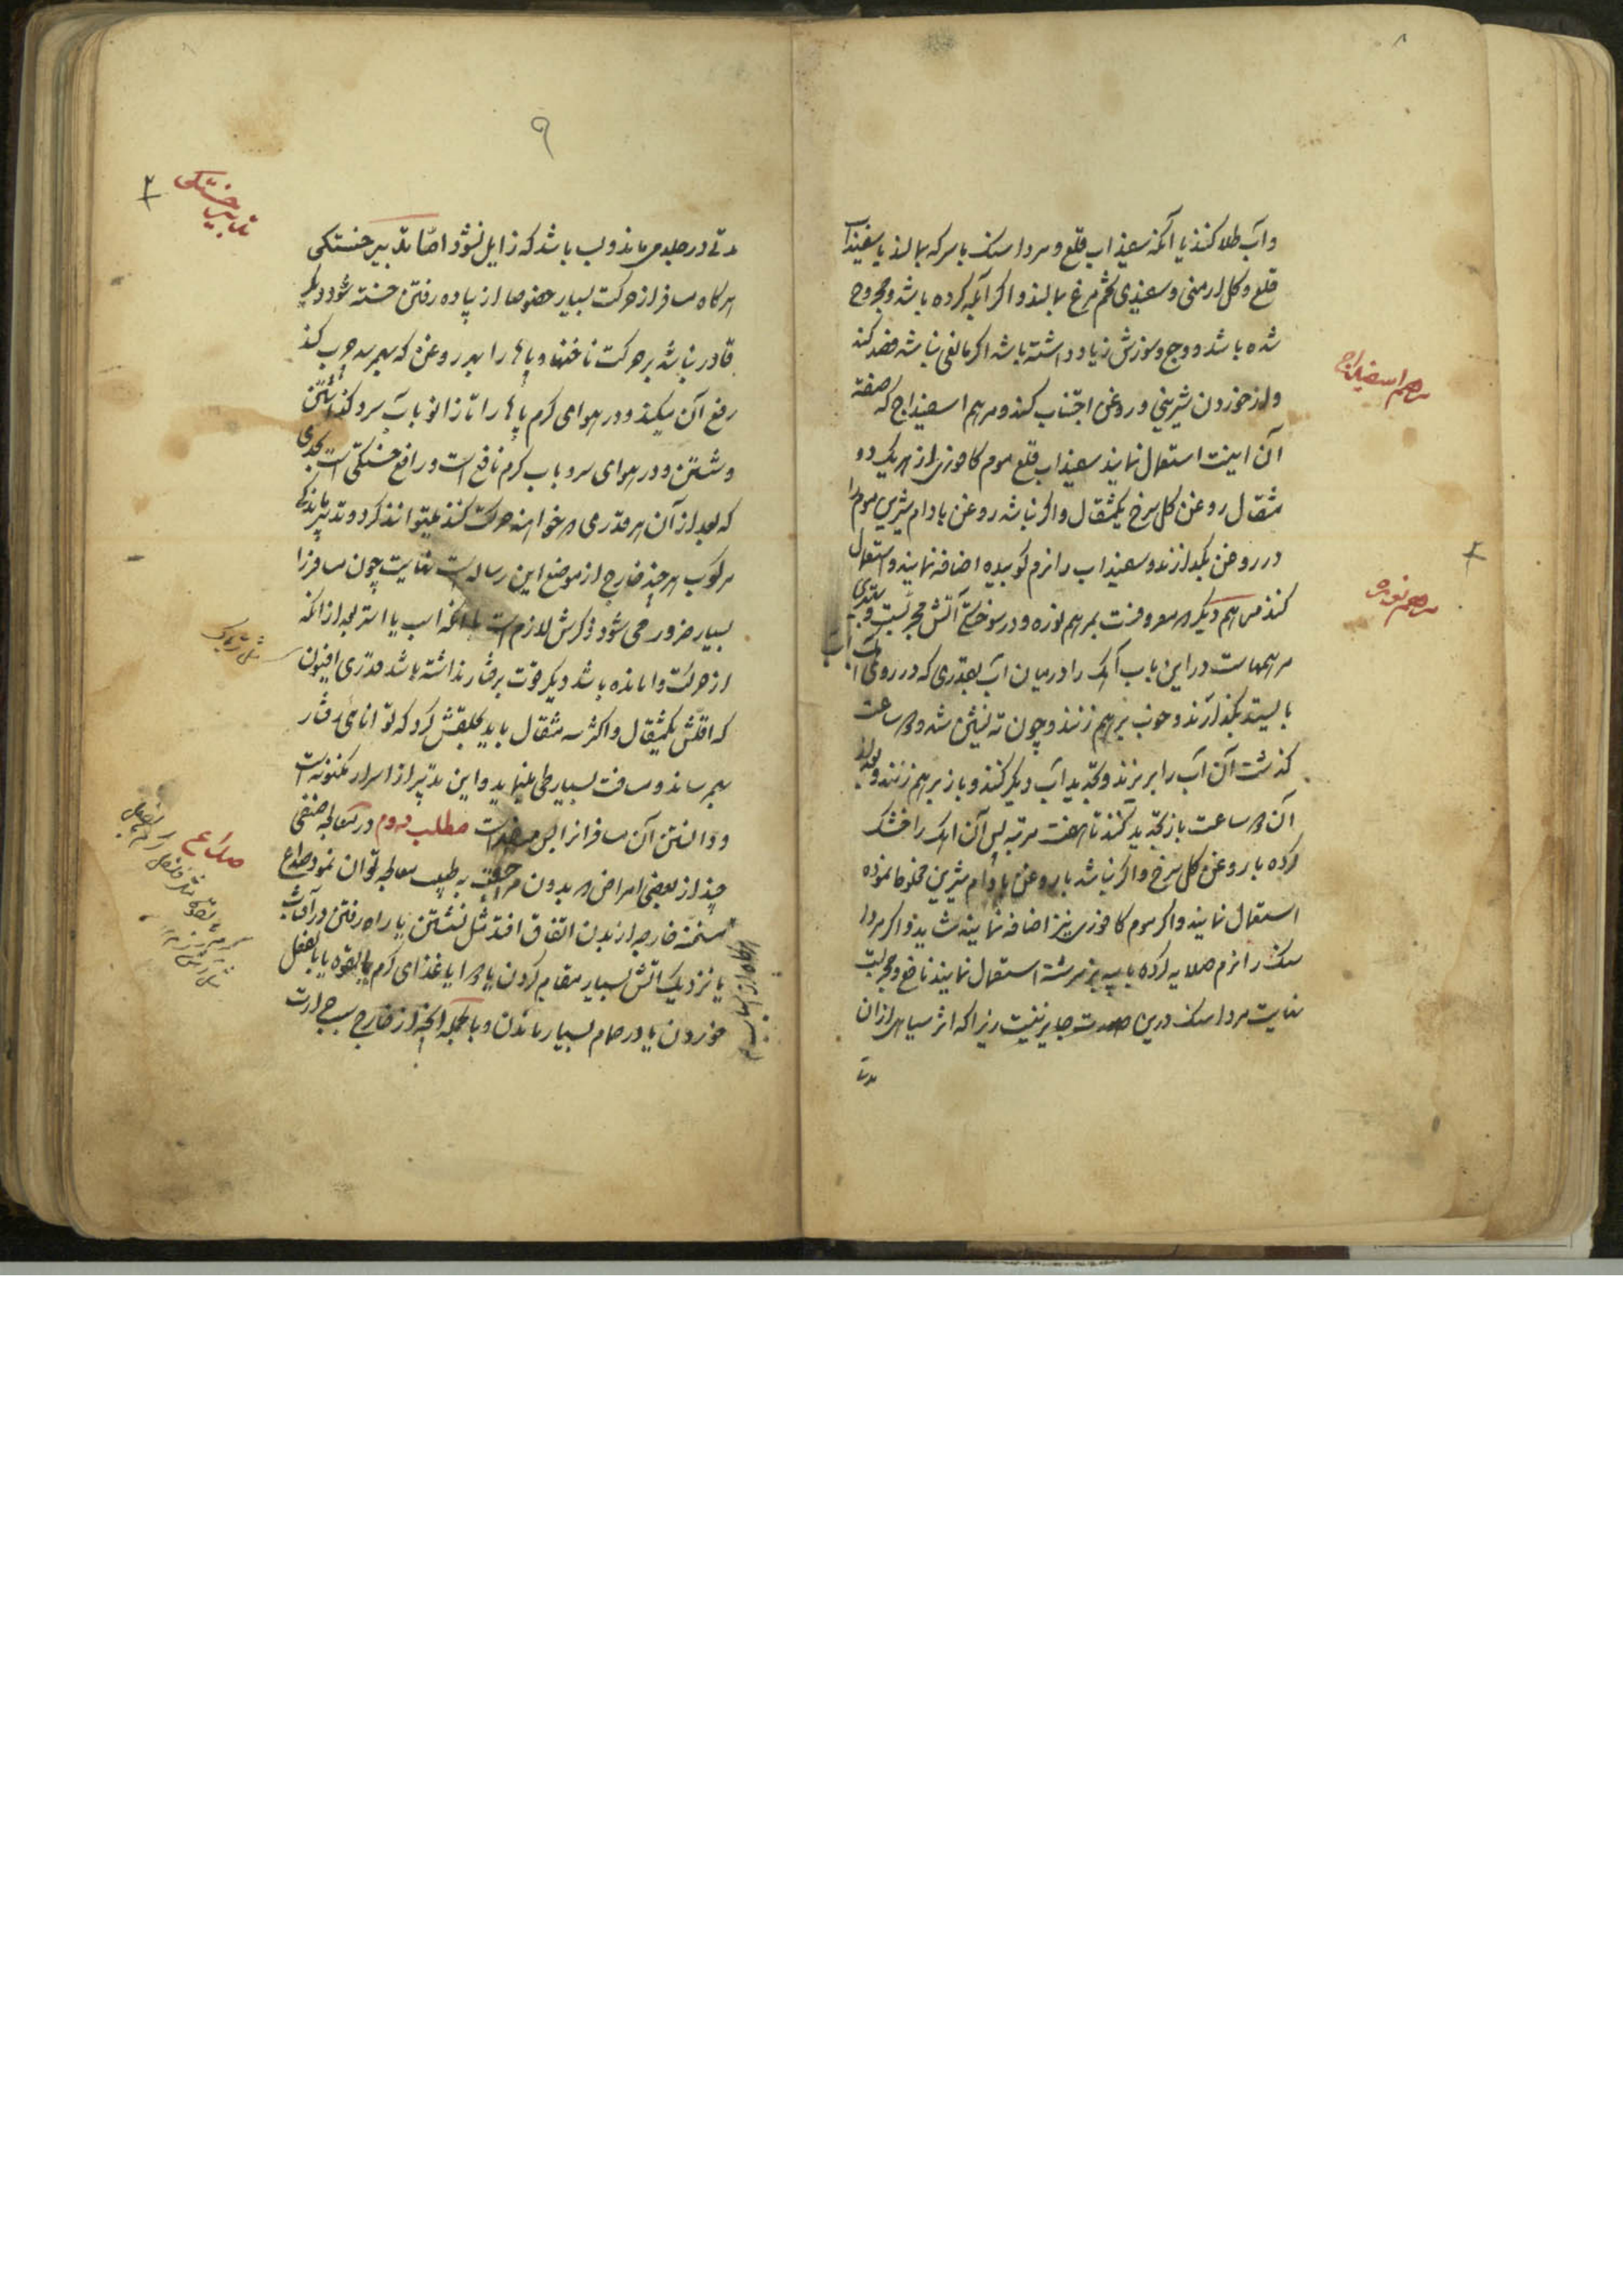 ۸
و آب طلا کنند یا آنکه سفیداب قلع و مرداسنک با سرکه بمالند یا سفیداب
قلع و کل ارمنی و سفیدی تخم مرغ بمالند و اکر آبله کرده باشد و مجروح
شده باشد و وجع و سوزش زیاد داشته باشد اکر مانعی نباشد فصد کند
و از خوردن شیرینی و روغن اجتناب کند و مرهم اسفیداج که صفة
مرهم اسفیداج
آن اینست استعمال نمایند سفیداب قلع موم کافوری از هر یک دو
مثقال روغن کل سرخ یکمثقال و اکر نباشد روغن بادام شیرین موم را
در روغن بکدازند و سفیداب را نرم کوبیده اضافه نمایند و استعمال
کنند مرهم دیکر که معروفست بمرهم نوره و در سوختکی آتش مجربست و
مرهم نوره
مرهمهاست در این باب آهک را در میان آب بقدری که در روی آن آب
بایستد بکذارند و خوب برهم زنند و چون ته نشین شد و ساعت
کذشت آن آب را بریزند و تجدید آب دیکر کنند و باز برهم زنند و بعد از
آن ساعت باز تجدید کنند تا هفت مرتبه پس آن آهک را خشک
کرده با روغن کل سرخ و اکر نباشد با روغن بادام شیرین مخلوط نموده
استعمال نمایند و اکر موم کافوری نیز اضافه نمایند شاید و اکر مردا
سنک را نرم صلایه کرده با پیه بز سرشته استعمال نمایند نافع و مجربست
نهایت مرداسنک درین صورت جایز نیست زیرا که اثر سیاهی از آن
مدتی
۹
مدتی در جلد می ماند و لب باشد که زایل نشود امّا تدبیر خستکی
تدبیر خستکی
هرکاه مسافر از حرکت بسیار خصوصا از پیاده رفتن خسته شود و دیکر
قادر نباشد بر حرکت ناخنها و پاها را بهر روغن که بهم رسد چرب کند
رفع آن میکند و در هوای کرم پاها را تا زانو بآب سرد کذاشتن
و شستن و در هوای سرد بآب کرم نافع است و رافع خستکی است بحدی
که بعد از آن هر قدری که خواهند حرکت کنند میتوانند کرد و تدبیر ماندکی
مرکوب هر چند خارج از موضع این رساله است نهایت چون مسافر را
بسیار ضرور می شود ذکرش لازم است بدانکه اسب یا استر بعد از آنکه
از حرکت وامانده باشد و دیکر قوت برفتار نداشته باشد قدری افیون
مثل تریاک
که اقلش یکمثقال و اکثر سه مثقال باید بحلقش کرد که توانائی رفتار
بهم رساند و مسافت بسیار طی مینماید و این تدبیر از اسرار مکنونه است
و دانستن آن مسافر را بس ضرور است مطلب دوم در معالجه
چند از بعضی امراض که بدون مراجعت به طبیب معالجه توان نمود صداع
صداع
مسخنه خارجه از بدن اتفاق افتد مثل نشستن یا راه رفتن در آفتاب
یا نزدیک آتش بسیار مقام کردن یا دوا یا غذای کرم بالقوه یا بالفعل
خوردن یا در حمام بسیار ماندن و بالجمله آنچه از خارج سبب حرارت